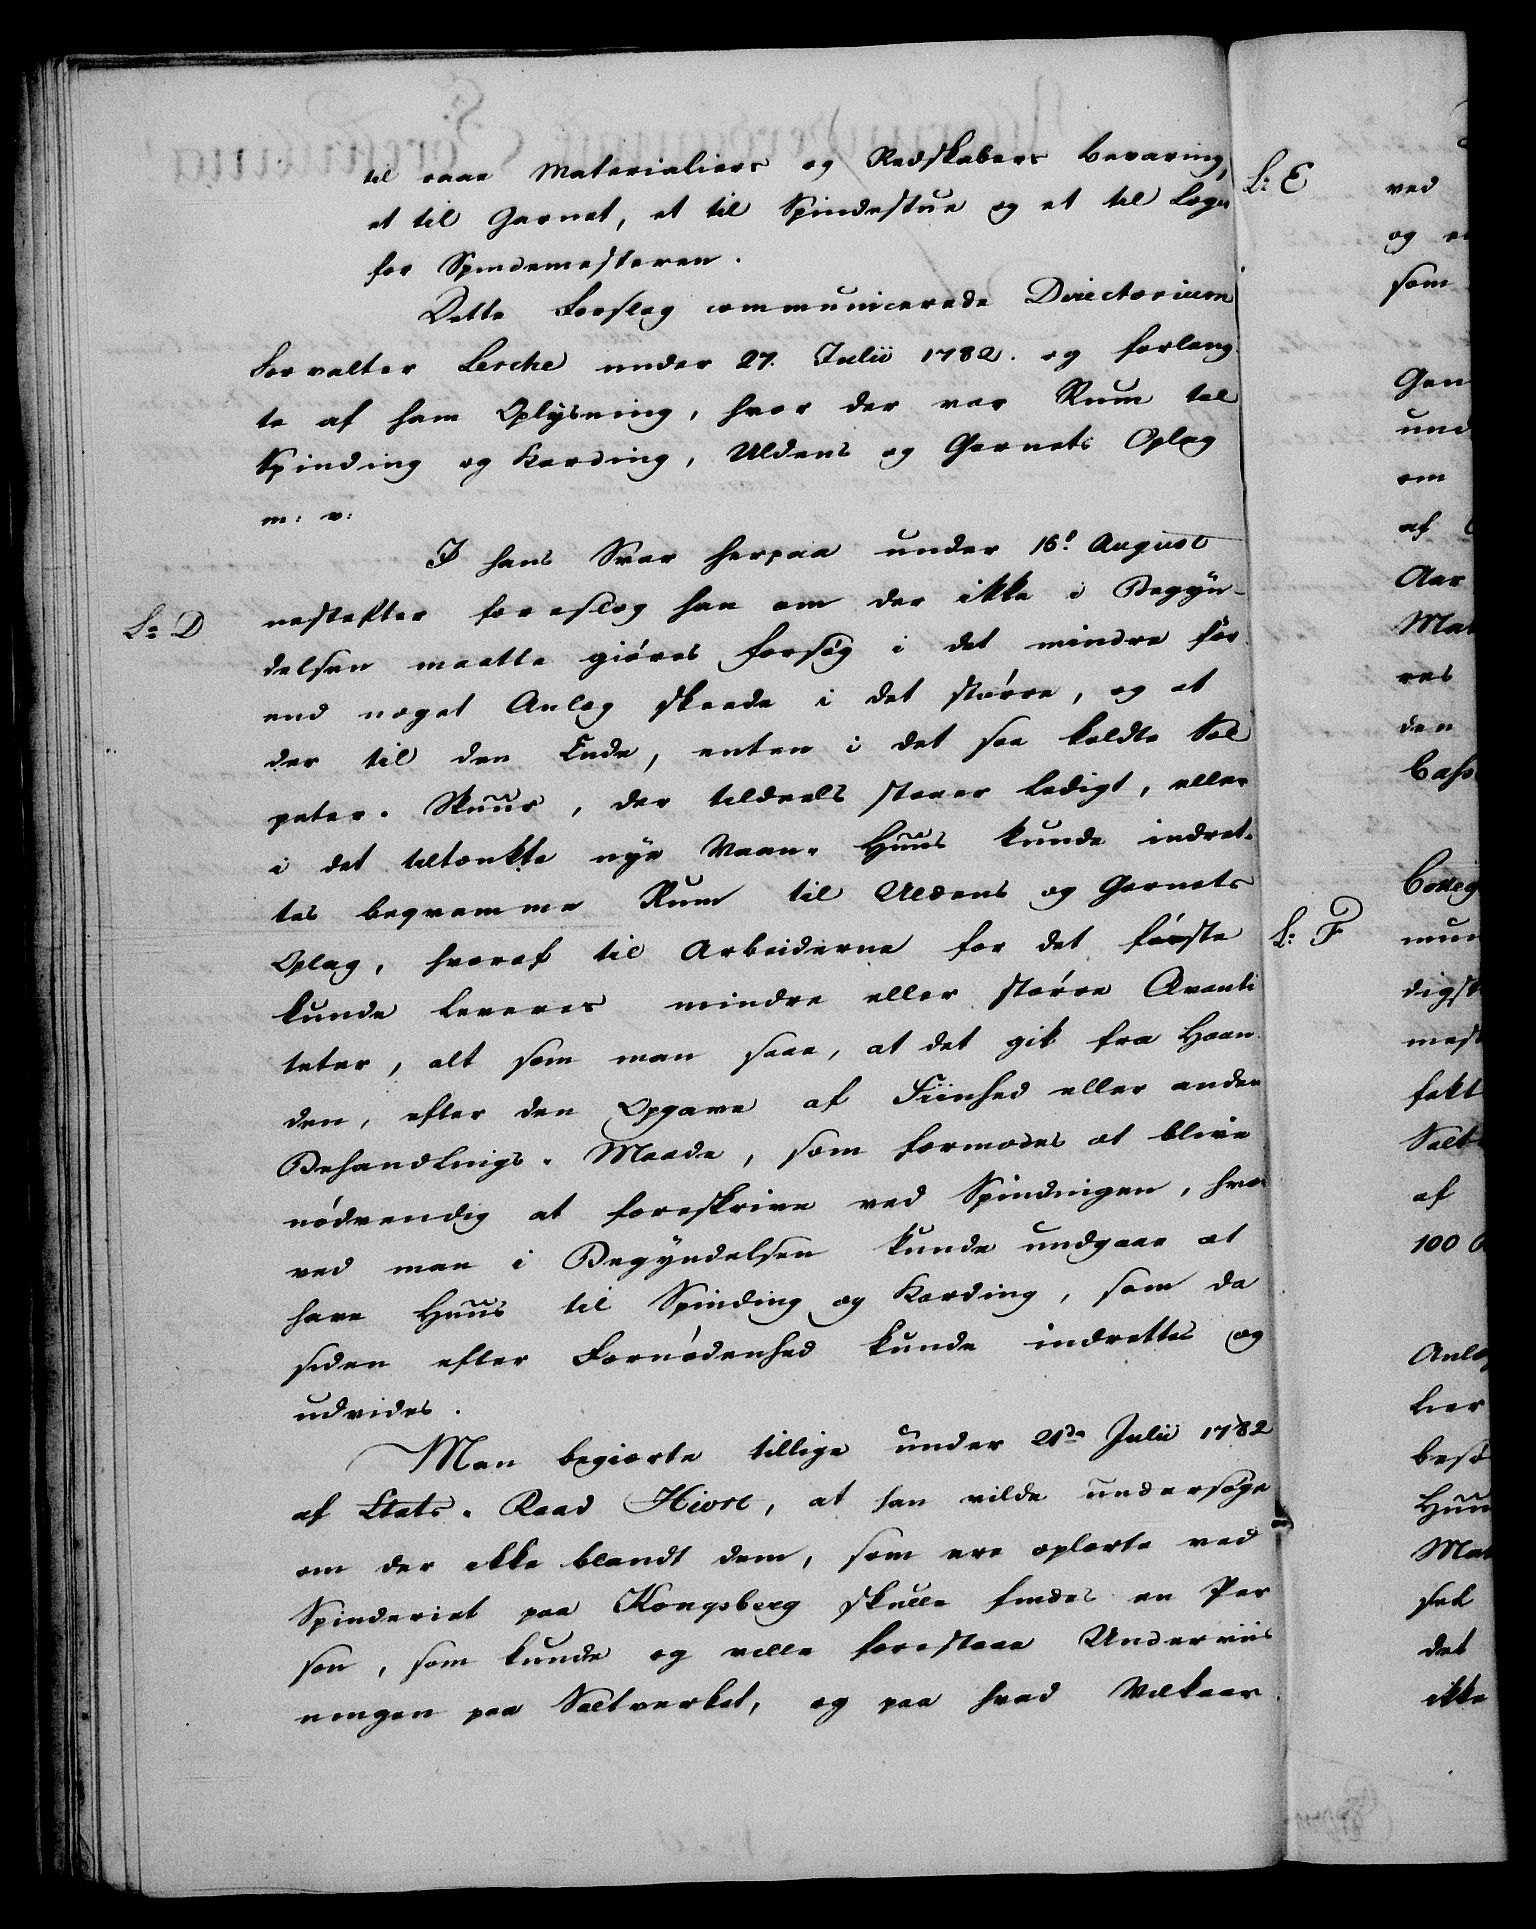 til raae Materialiers og Redskabers bevaring,
et til Garnet, et til Spindestue og et til Logis
for Spindemesteren.
Dette Forslag communicerede Directorium
Forvalter Lerche under 27. Julii 1782. og forlang
te af ham Oplysning, hvor der var Rum til
Spinding og Karding, Uldens og Garnets Oplag
m: v:
I hans Svar herpaa under 16d August
L: D
næstefter foreslog han om der ikke i Begyn-
delsen maatte giøres Forsøg i det mindre før
end noget Anlæg skeede i det større, og at
der til den Ende, enten i det saa kaldte Sal
peter-Skuur, der tildeels staaer ledigt, eller
i det tiltænkte nye Vaan-Huus kunde indret-
tes beqvemme Rum til Uldens og Garnets
Oplag, hvoraf til Arbeiderne for det første
kunde leveres mindre eller større Qvanti
teter, alt som man saae, at det gik fra Haan
den, efter den Opgave af Fiinhed eller anden
Behandlings-Maade, som formodes at blive
nødvendig at foreskrive ved Spindingen, hvor
ved man i Begyndelsen kunde undgaae at
have Huus til Spinding og Karding, som da
siden efter Fornødenhed kunde indrettes og
udvides.
Man begiærte tillige under 21de Julii 1782
af Etats-Raad Hiort, at han vilde undersøge
om der ikke blandt dem, som ere oplærte ved
Spinderiet paa Kongsberg skulle findes en Per
son, som kunde og ville forestaae Underviis
ningen paa Saltverket, og paa hvad Vilkaar.
L: E
ved
og
som
L: F
om
af
Aar
den
af
100
det
ikke